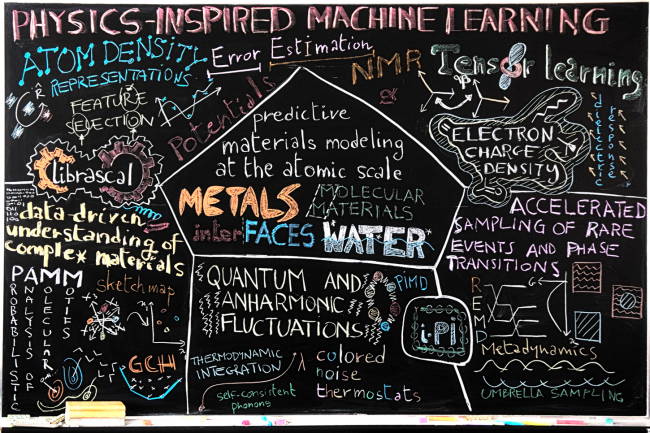 PHYSICS-INSPIRED MACHINE LEARNING
ATOM DENSITY
REPRESENTATIONS
Error Estimation
NMR
Tensor learning
FEATURE
SELECTION
Potentials
librascal
predictive
materials modeling
at the atomic scale
METALS
MOLECULAR
MATERIALS
interFACES
WATER
ELECTRON
CHARGE
DENSITY
dielectric
response
data-driven
understanding of
complex materials
PAMM
PROBABILISTIC
ANALYSIS OF
MOLECULAR
MOTIFS
sketchmap
GCH
QUANTUM AND
ANHARMONIC
FLUCTUATIONS
PIMD
THERMODYNAMIC
INTEGRATION
self-consistent
phonons
colored
noise
thermostats
i-PI
ACCELERATED
SAMPLING OF RARE
EVENTS AND PHASE
TRANSITIONS
REMD
Metadynamics
UMBRELLA SAMPLING